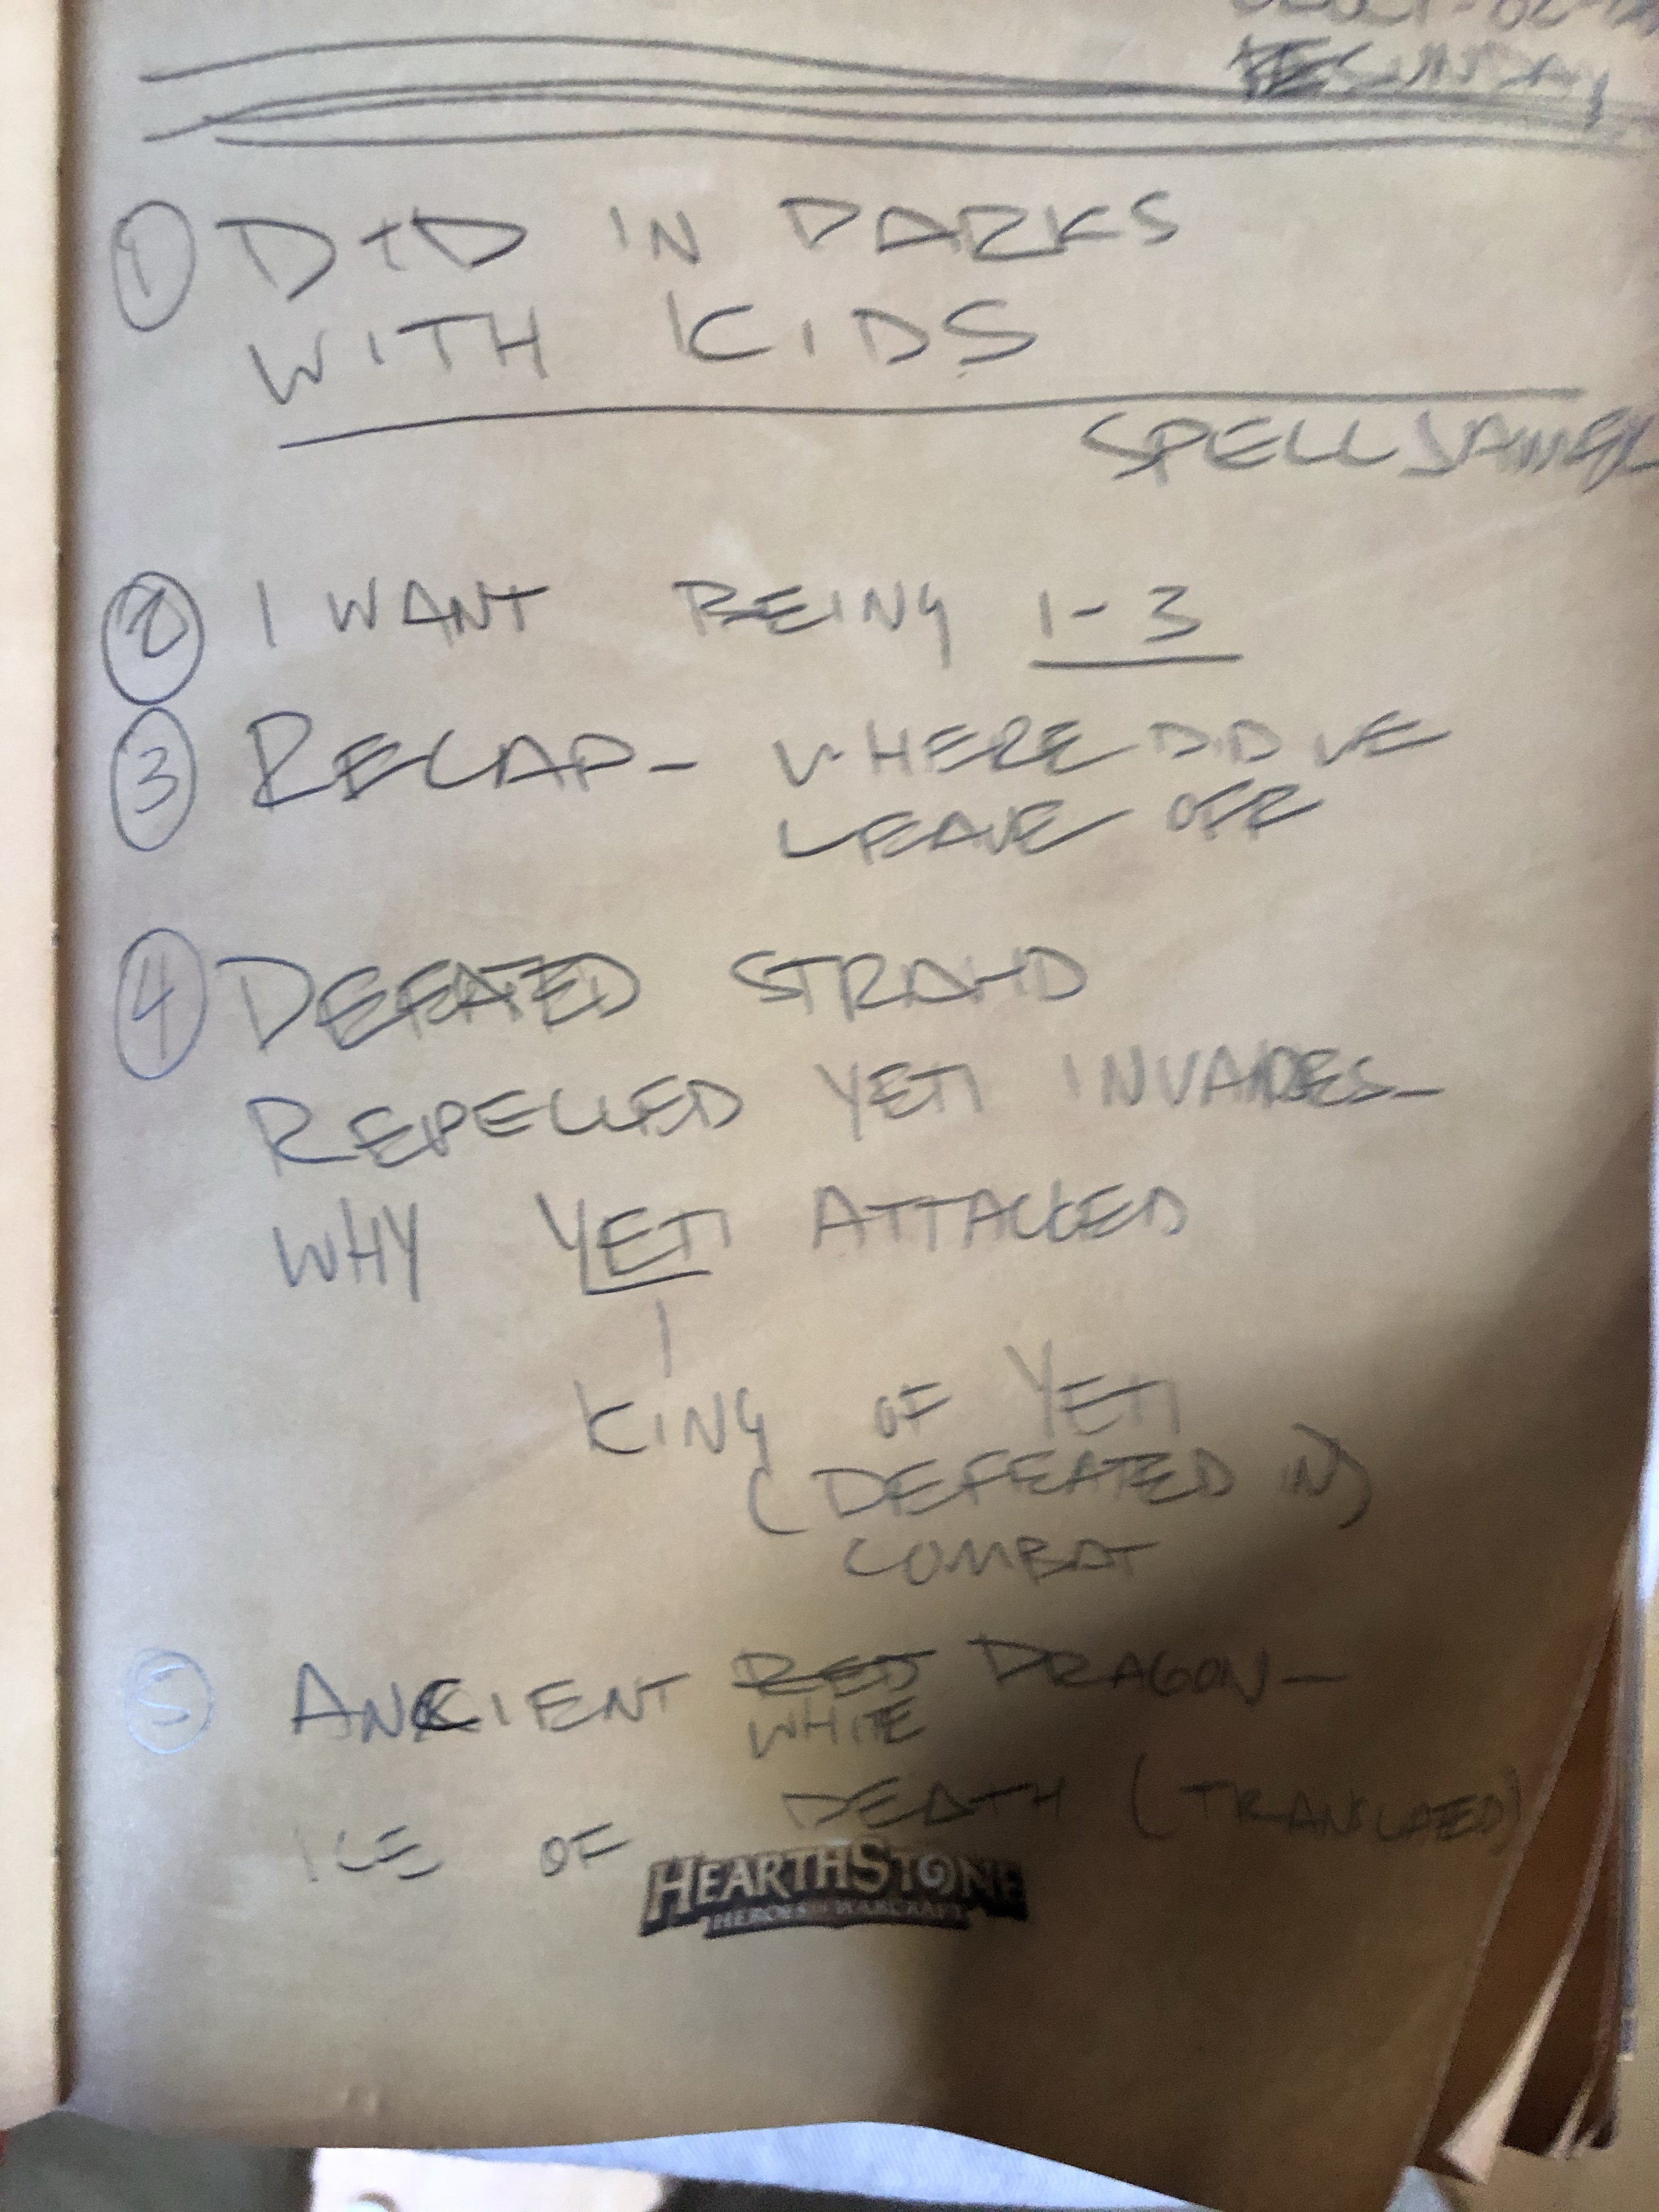 ① D+D IN PARKS
WITH KIDS
SPELLJAMMER
② I WANT BEING 1-3
③ RECAP- WHERE DID WE
LEAVE OFF
④ DEFEATED STRAHD
REPELLED YETI INVADES-
WHY YETI ATTACKED
KING OF YETI
(DEFEATED IN)
COMBAT
⑤ ANCIENT RED DRAGON-
WHITE
ICE OF DEATH (TRANSLATED)
HEARTHSTONE
HEROES OF WARCRAFT